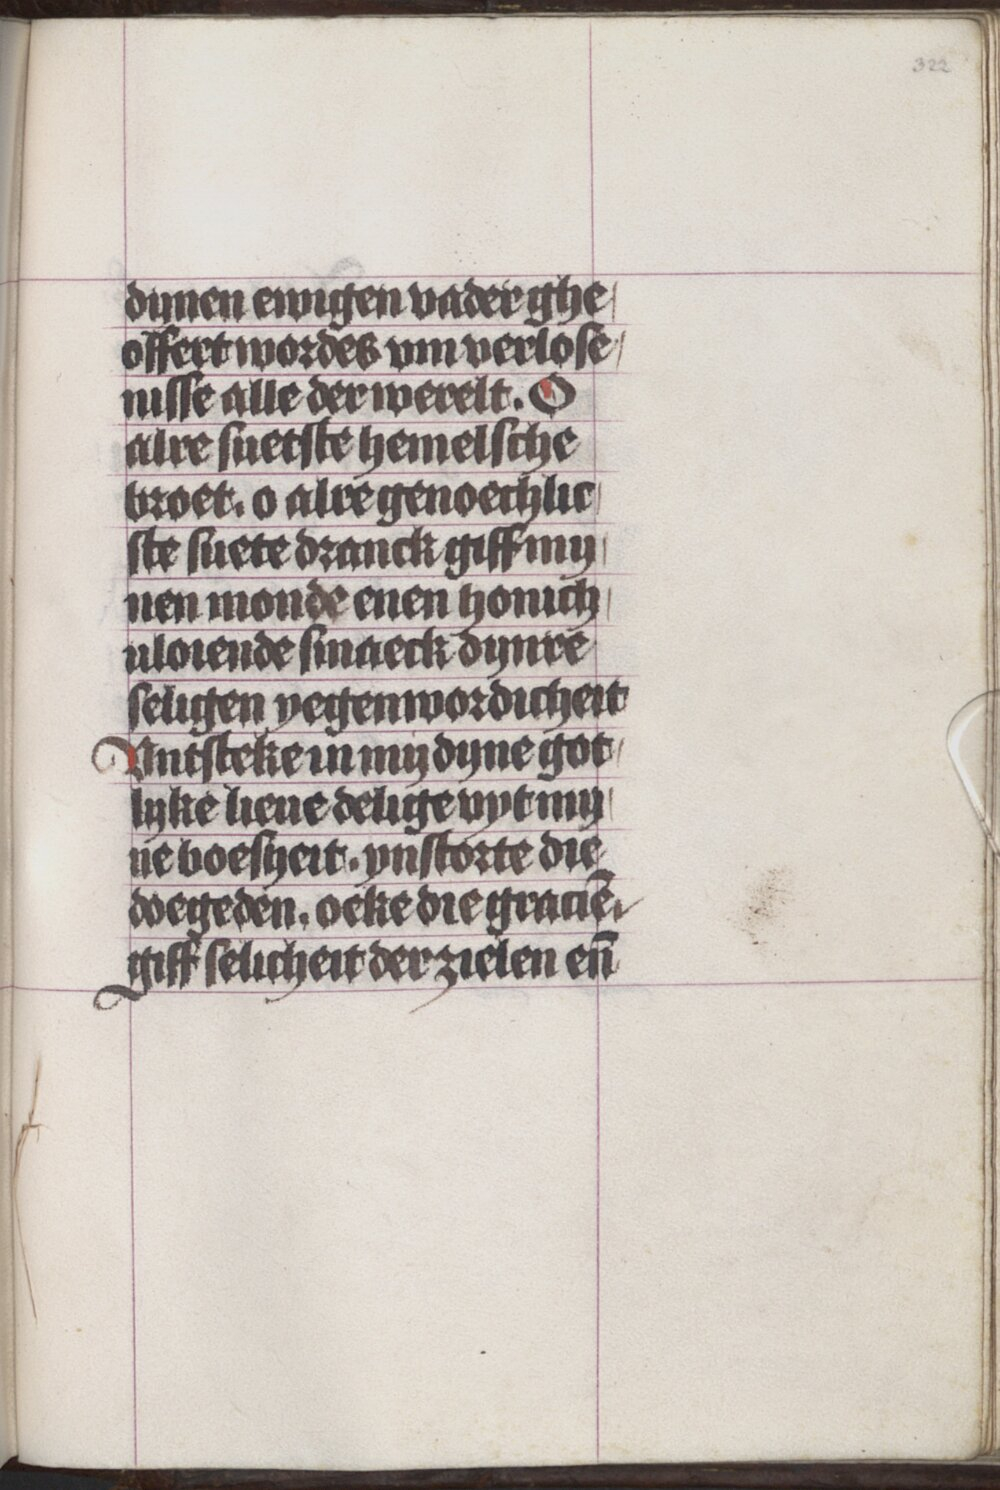 322
dijnen ewigen vader ghe/
offert wordes vm verlose/
nisse alle der werelt. O
alre suetste hemelsche
broet. o alre genoechlic/
ste suete dranck giff mij/
nen monde enen honich/
vloiende smaeck dijnre
seligen yegenwordicheit
Untsteke in mij dijne got/
lijke lieue delige vyt mij/
ne boesheit. ynstorte die
doegeden. oeke die gracie͞.
giff selicheit der zielen en͞